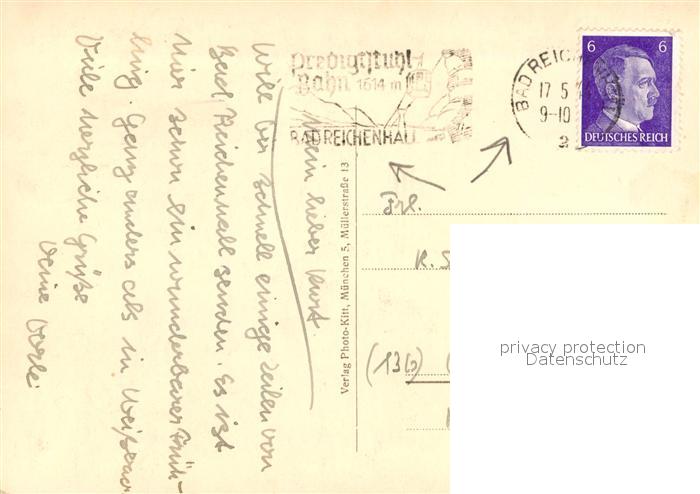 Mein lieber Kurt.
Will Dir schnell einige Zeilen von
Bad Reichenhall senden. Es ist
hier schon ein wunderbarer Früh-
ling. Ganz anders als in
Viele herzliche Grüße
Deine
Predigtstuhl
Bahn 1614 m
BAD REICHENHALL
BAD REICH
17 5
9-10
2
6 6
DEUTSCHES REICH
Verlag Photo-Kitt, München 5, Müllerstraße 13
Frl.
K. S
(13b)
privacy protection
Datenschutz